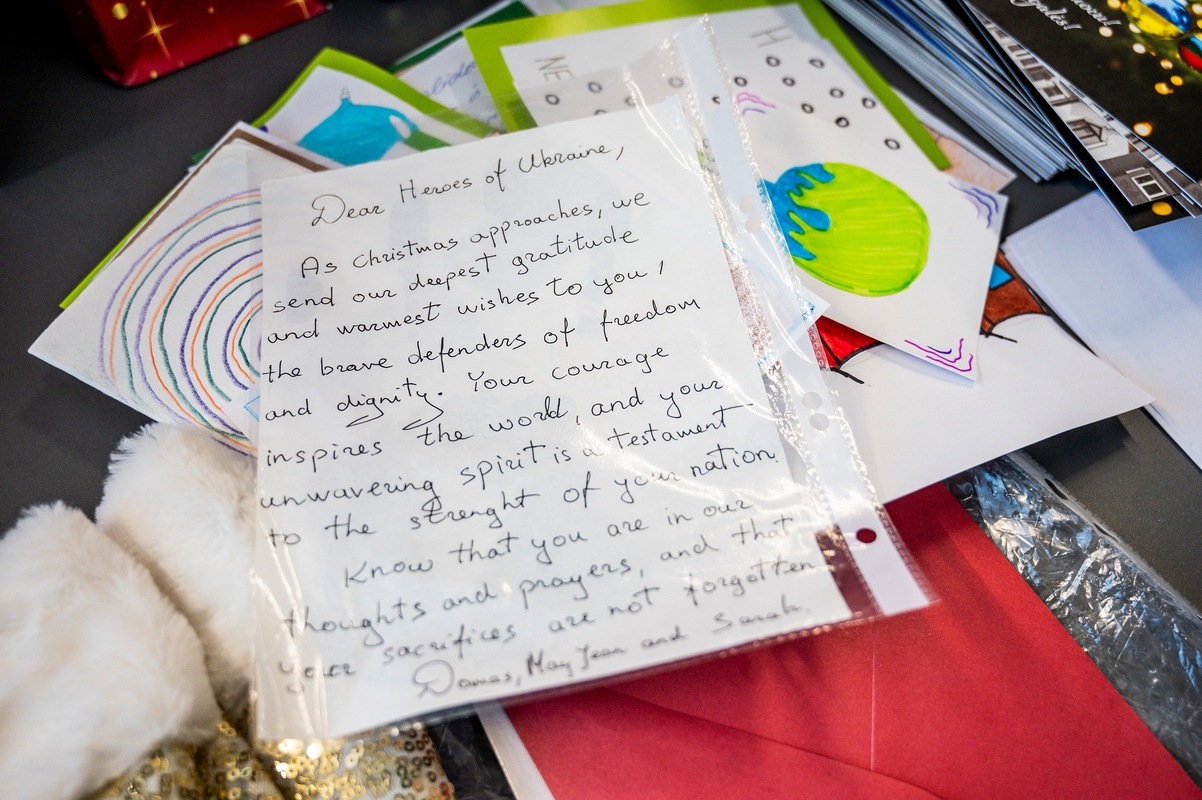 Dear Heroes of Ukraine,
As christmas approaches, we
send our deepest gratitude
and warmest wishes to you,
the brave defenders of freedom
and dignity. Your courage
inspires the world, and your
unwavering spirit is a testament
to the strenght of your nation.
Know that you are in our
thoughts and prayers, and that
your sacrifices are not forgotten
Domas, May Jean and Sarah.
NE
H